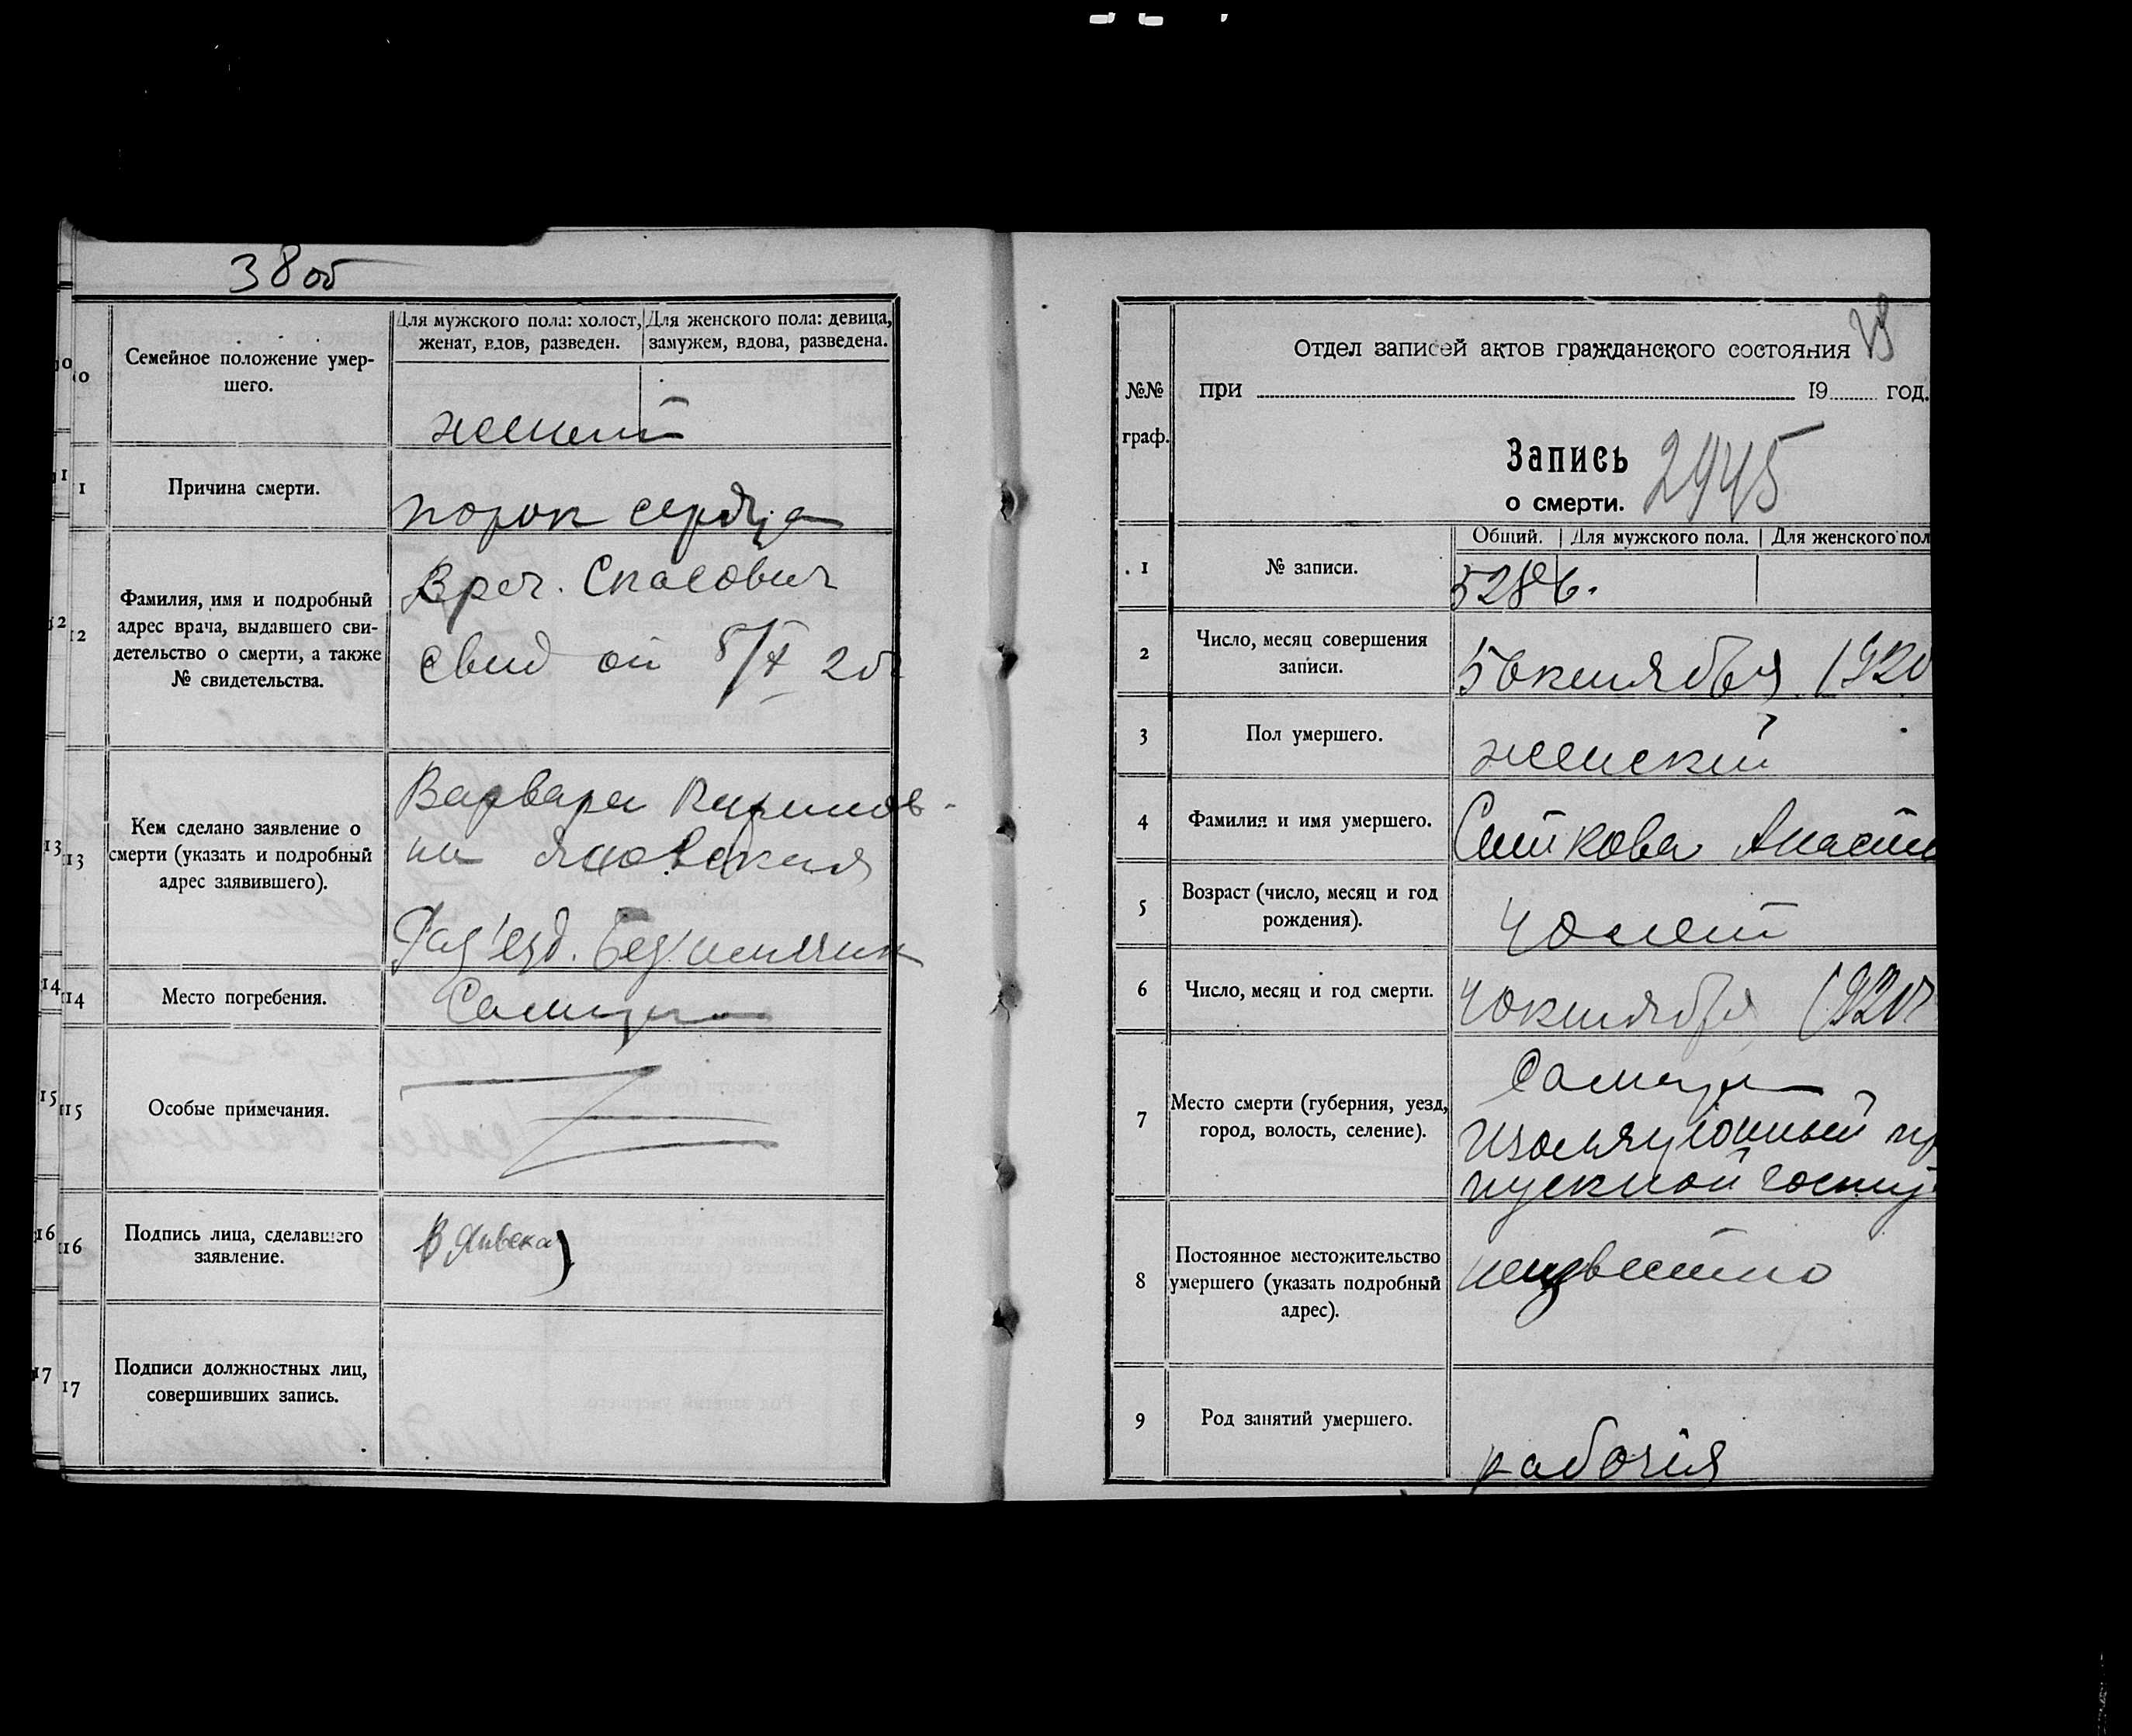 38 об
Семейное положение умер-
шего.
Для мужского пола: холост,
женат, вдов, разведен.
Для женского пола: девица,
замужем, вдова, разведена.
10
11
Причина смерти.
порок сердца
12
Фамилия, имя и подробный
адрес врача, выдавшего сви-
детельство о смерти, а также
№ свидетельства.
Врач. Спасович
свид от 5/X 20г
13
Кем сделано заявление о
смерти (указать и подробный
адрес заявившего).
Варвара
на Яновская
Раз'езд. Без'имянк
14
Место погребения.
Самара
15
Особые примечания.
16
Подпись лица, сделавшего
заявление.
17
Подписи должностных лиц,
совершивших запись.
№№
граф.
Отдел записей актов гражданского состояния
при 19 год.
Запись
о смерти.
2945
1
№ записи.
Общий.
Для мужского пола.
Для женского пол
5286.
2
Число, месяц совершения
записи.
5 октября 1920
3
Пол умершего.
женский
4
Фамилия и имя умершего.
Ситкова Анаста
5
Возраст (число, месяц и год
рождения).
40 лет
6
Число, месяц и год смерти.
4 октября 1920г
7
Место смерти (губерния, уезд,
город, волость, селение).
Самара
Изоляционный пр
пускной госпит
8
Постоянное местожительство
умершего (указать подробный
адрес).
неизвестно
9
Род занятий умершего.
рабочая